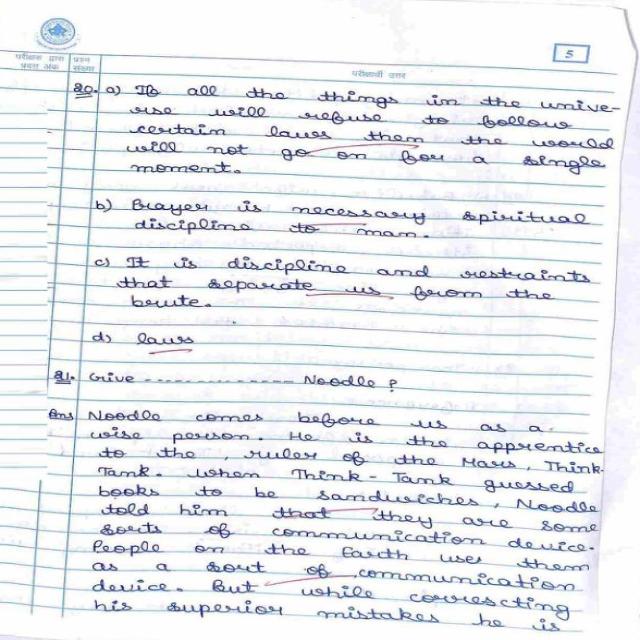 5
परीक्षक द्वारा
प्रदत्त अंक
प्रश्न
संख्या
परीक्षार्थी उत्तर
20. a) If all the things in the unive-
rse will refuse to follow
certain laws them the world
will not go on for a single
moment.
b) Prayer is necessary spiritual
discipline to man.
c) It is discipline and restraints
that separate us from the
brute.
d) laws
21. Give -------------------- Noodle ?
Ans Noodle comes before us as a
wise person. He is the apprentice
to the, ruler of the Mars, Think-
Tank. When Think-Tank guessed
books to be sandwiches, Noodle
told him that they are some
sorts of communication device.
People on the Earth uses them
as a sort of communication
device. But while correcting
his superior mistakes he is